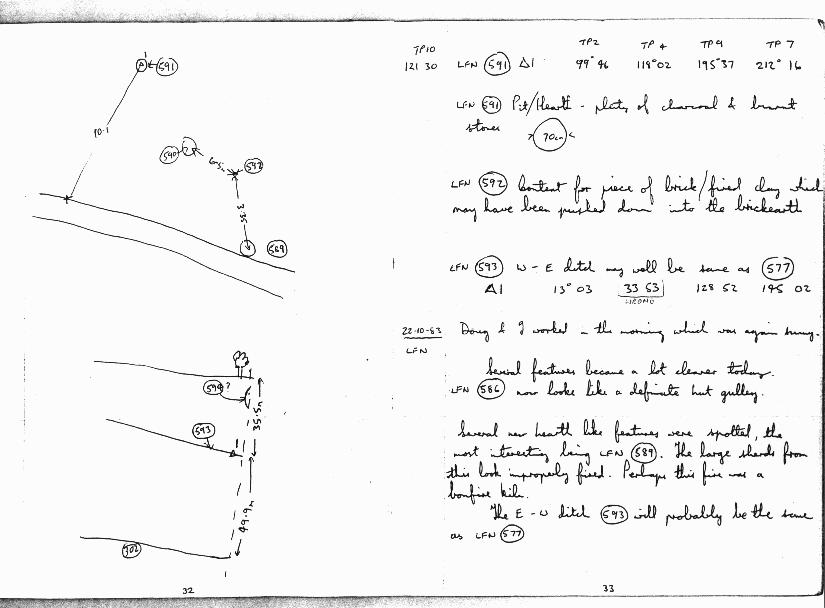 1
Δ ← 591
10.1
590
6.5m
592
3.35
589
594?
35.5m
593
49.9m
502
32
TP10 TP2 TP4 TP9 TP7
121 30 LFN 591 Δ1 99° 46 119° 02 195° 37 212° 16
LFN 591 Pit/Hearth - plenty of charcoal & burnt
stones >70cm<
LFN 592 Context for piece of brick/fired clay which
may have been pushed down into the brickearth
LFN 593 W - E ditch may well be same as 577
Δ1 13° 03 33 53 128 52 195 02
WRONG
22-10-83 Doug & I worked in the morning which was again sunny.
LFN
Several features became a lot clearer today.
LFN 586 now looks like a definite hut gulley.
Several new hearth like features were spotted, the
most interesting being LFN 589. The large sherds from
this look improperly fired. Perhaps this fire was a
bonfire kiln.
The E - W ditch 593 will probably be the same
as LFN 577
33